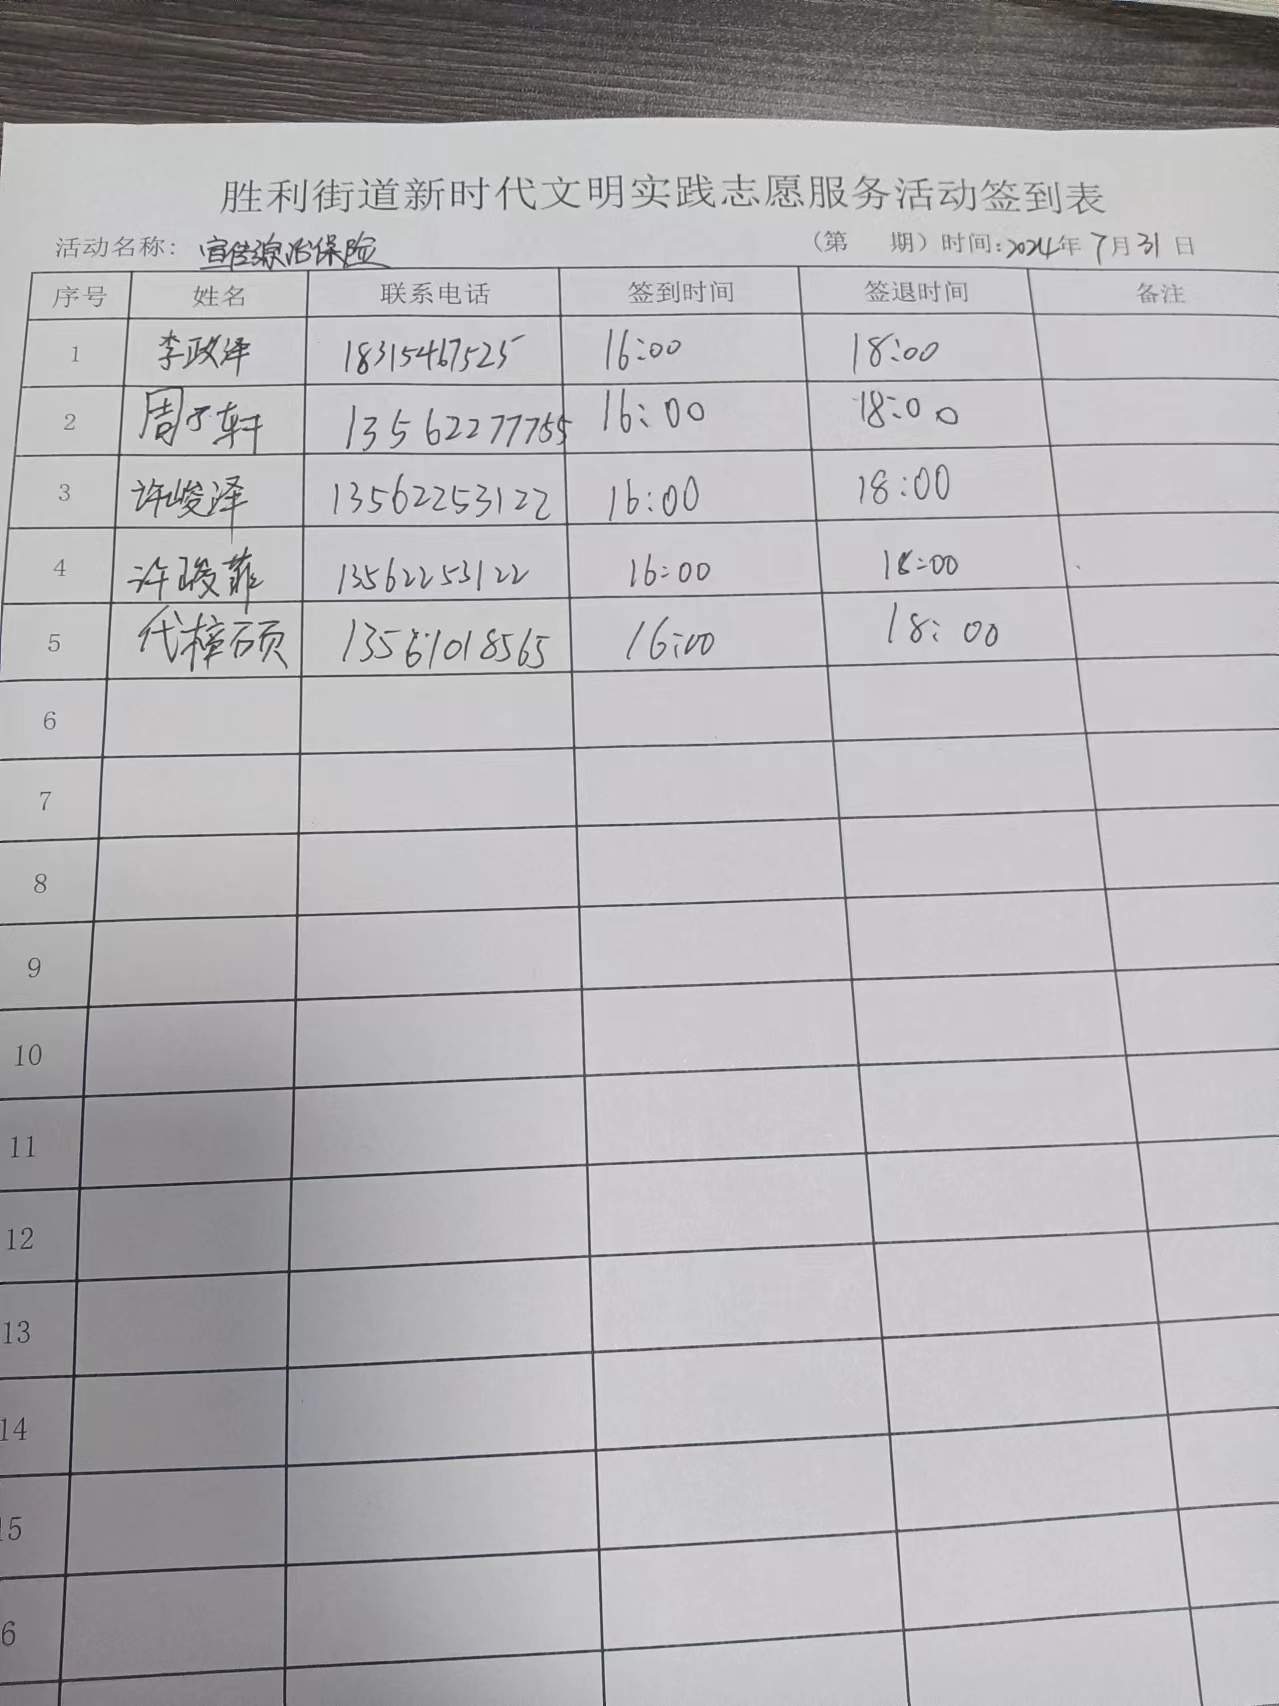 胜利街道新时代文明实践志愿服务活动签到表
活动名称: 宣传源治保险 (第 期) 时间: 2024年 7月31日
序号 姓名 联系电话 签到时间 签退时间 备注
1 李政泽 18315467525 16:00 18:00
2 周子轩 13562277755 16:00 18:00
3 许峻泽 13562253122 16:00 18:00
4 许骏菲 13562253122 16:00 18:00
5 代樟硕 13561018565 16:00 18:00
6
7
8
9
10
11
12
13
14
15
6